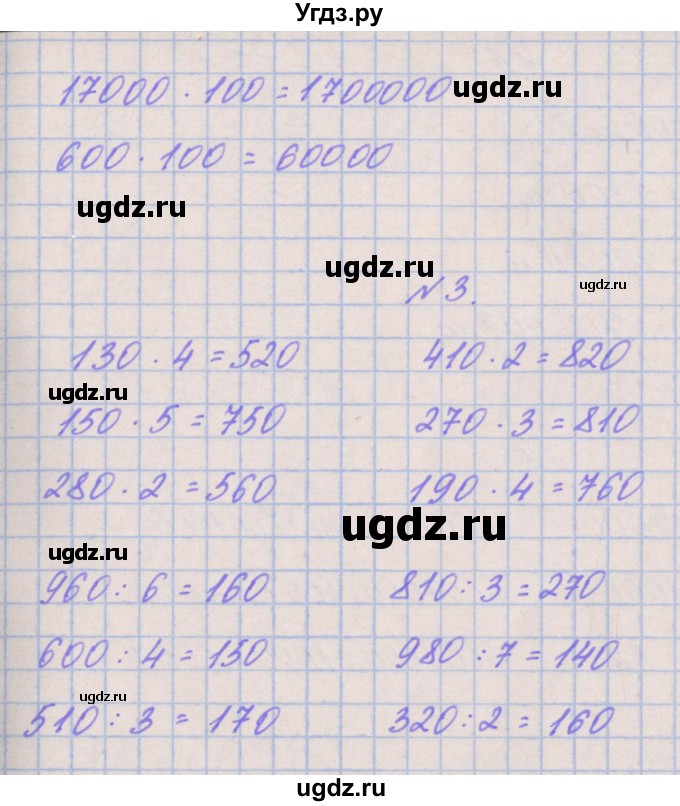 Угдз.ру
17000 · 100 = 1700000 ugdz.ru
600 · 100 = 60000
ugdz.ru
ugdz.ru
№ 3. ugdz.ru
130 · 4 = 520 410 · 2 = 820
ugdz.ru
150 · 5 = 750 270 · 3 = 810
280 · 2 = 560 190 · 4 = 760
ugdz.ru
ugdz.ru
960 : 6 = 160 810 : 3 = 270
600 : 4 = 150 980 : 7 = 140
ugdz.ru
510 : 3 = 170 320 : 2 = 160
ugdz.ru
ugdz.ru